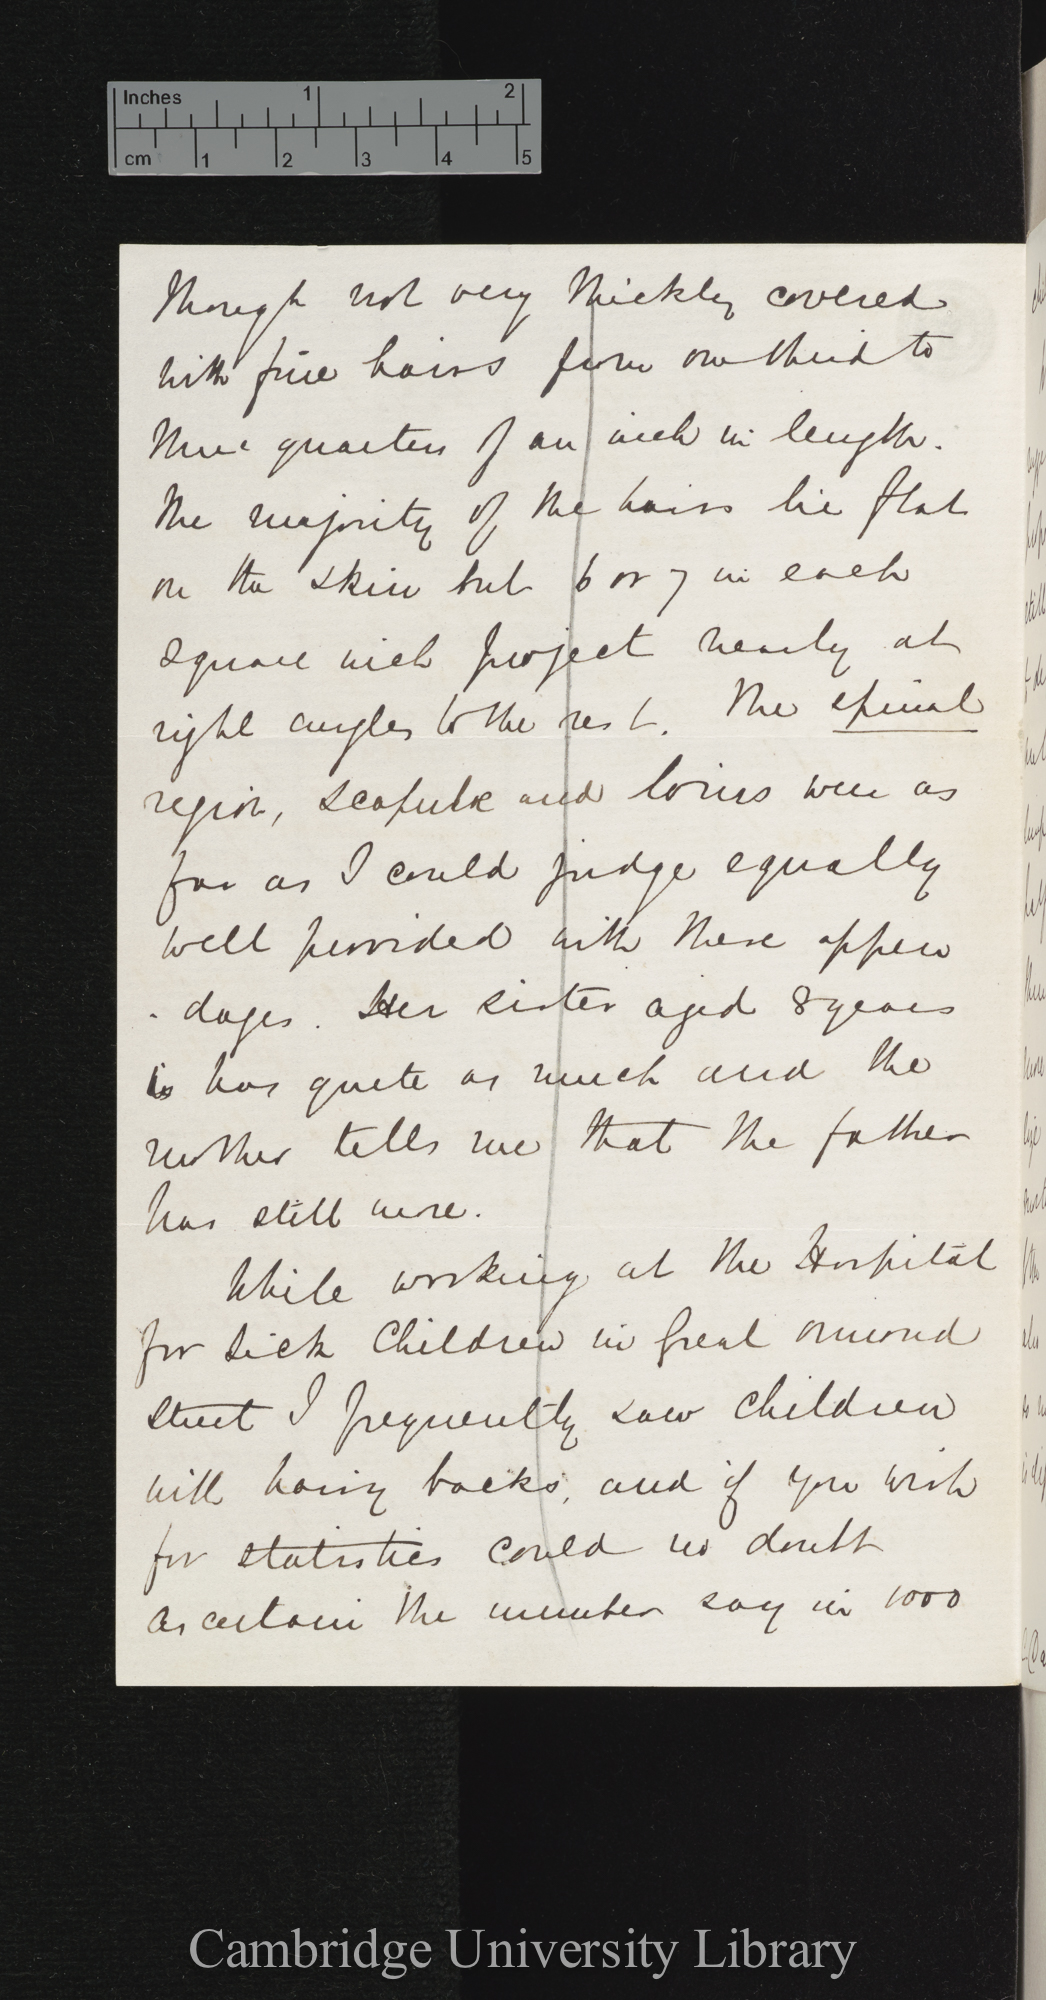 Inches 1 2
cm 1 2 3 4 5
though not very thickly covered
with fine hairs from one third to
three quarters of an inch in length.
The majority of the hairs lie flat
on the skin but 6 or 7 in each
square inch project nearly at
right angles to the rest. The spinal
region, scapulæ and loins were as
far as I could judge equally
well provided with these appen
-dages. Her sister aged 8 years
is has quite as much and the
mother tells me that the father
has still more.
While working at the Hospital
for Sick Children in Great Ormond
Street I frequently saw children
with hairy backs, and if you wish
for statistics could no doubt
ascertain the number say in 1000
Cambridge University Library